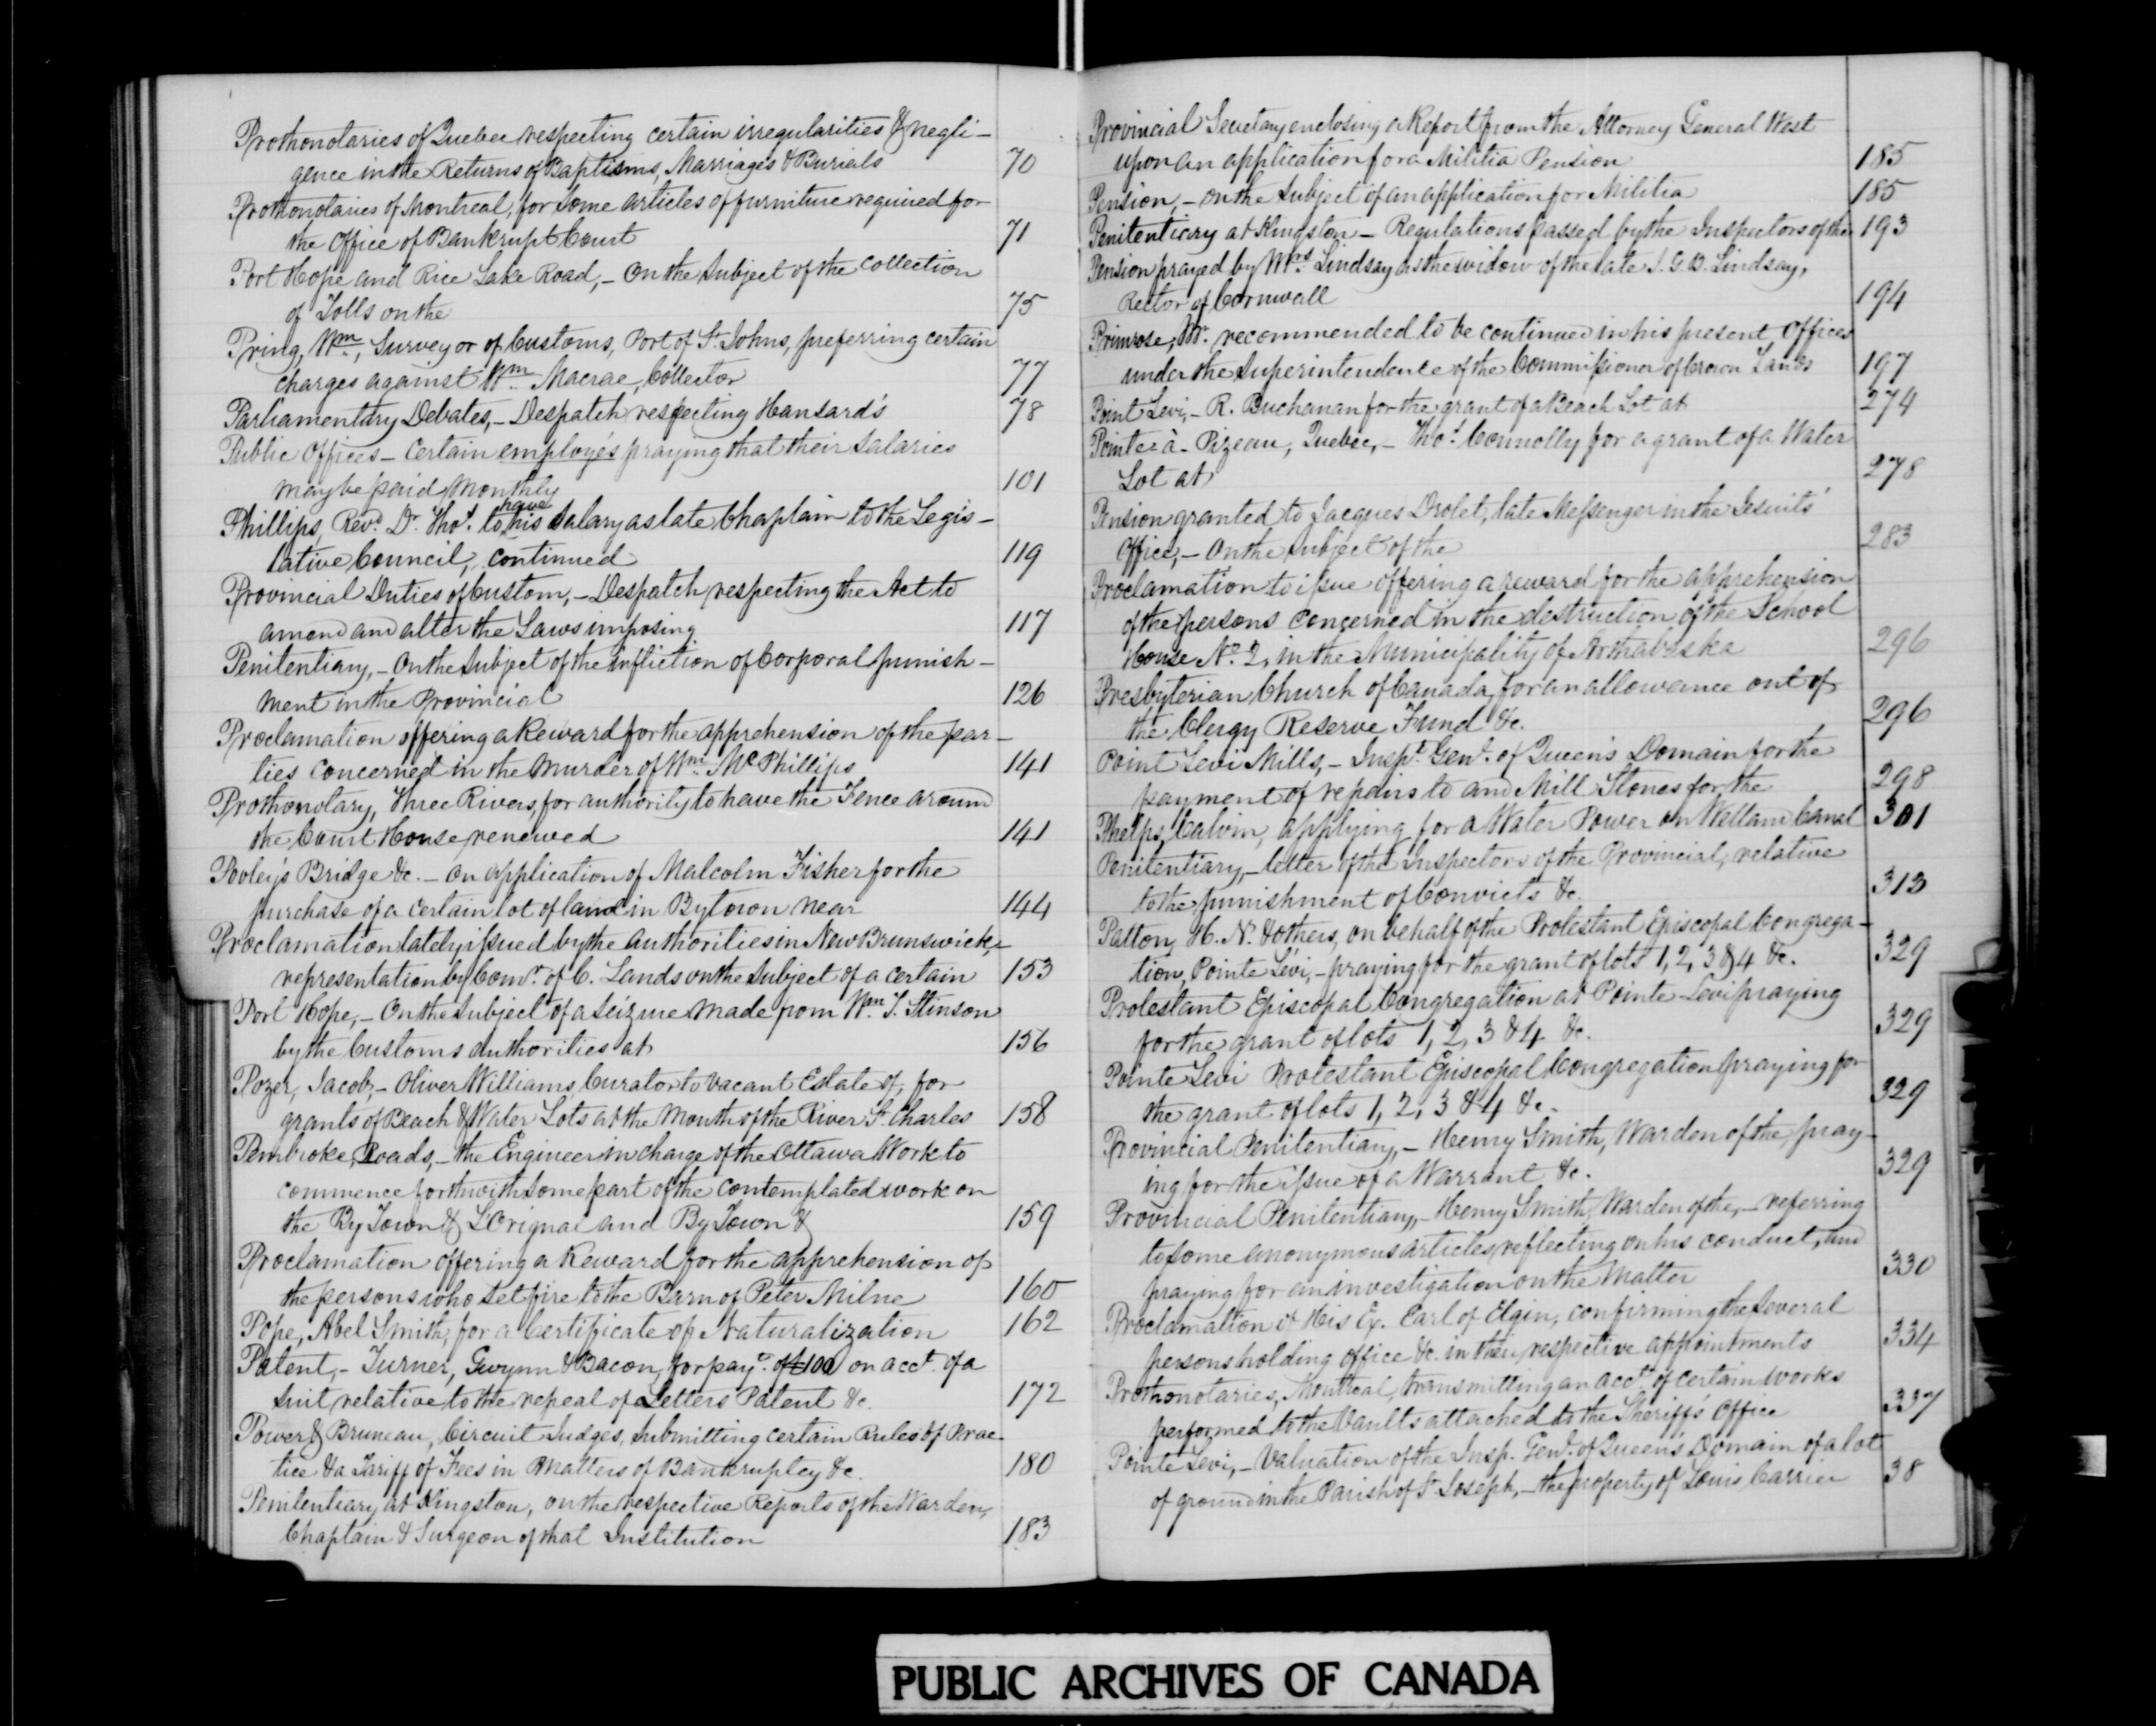 Prothonotaries of Quebec respecting certain irregularities & negli-
gence in the Returns of Baptisms, Marriages & Burials 70
Prothonotaries of Montreal, for some articles of furniture required for
the Office of Bankrupt Court 71
Port Hope and Rice Lake Road,- On the Subject of the Collection
of Tolls on the 75
Pring, Wm., Surveyor of Customs, Port of St. Johns, preferring certain
charges against Wm. Macrae, Collector 77
Parliamentary Debates,- Despatch respecting Hansard's 78
Public Offices - Certain employés praying that their Salaries
may be paid Monthly 101
Phillips, Revd. Dr. Thos. to have his Salary as late Chaplain to the Legis-
lative Council, continued 119
Provincial Duties of Custom,- Despatch respecting the Act to
amend and alter the Laws imposing 117
Penitentiary,- On the Subject of the infliction of Corporal punish-
ment in the Provincial 126
Proclamation offering a Reward for the apprehension of the par-
ties concerned in the Murder of Wm. McPhillips 141
Prothonotary, Three Rivers, for authority to have the Fence around
the Court House renewed 141
Pooley's Bridge &c. - On application of Malcolm Fisher for the
purchase of a certain lot of land in Bytown near 144
Proclamation lately issued by the Authorities in New Brunswick,-
representation by Comr. of C. Lands on the Subject of a certain 153
Port Hope,- On the Subject of a Seizure made from Wm. J. Stinson
by the Customs Authorities at 156
Pozer, Jacob,- Oliver Williams, Curator to Vacant Estate of, for
grants of Beach & Water Lots at the Mouth of the River St. Charles 158
Pembroke, Roads,- the Engineer in charge of the Ottawa Work to
commence forthwith some part of the contemplated work on
the By Town & L'Orignal and By Town & 159
Proclamation offering a Reward for the apprehension of
the persons who set fire to the Barn of Peter Milne 160
Pope, Abel Smith, for a Certificate of Naturalization 162
Patent,- Turner, Gwynn & Bacon, for payt. of £100 on acct. of a
Suit relative to the repeal of Letters Patent &c. 172
Power & Bruneau, Circuit Judges, Submitting certain Rules of Prac-
tice & a Tariff of Fees in Matters of Bankruptcy &c. 180
Penitentiary at Kingston, on the respective Reports of the Warden,
Chaplain & Surgeon of that Institution 183
Provincial Secretary enclosing a Report from the Attorney General West
upon an application for a Militia Pension 185
Pension,- On the Subject of an application for Militia 185
Penitenticry at Kingston - Regulations passed by the Inspectors of the 193
Pension prayed by Mrs. Lindsay as the widow of the late J. G. B. Lindsay,
Rector of Cornwall 194
Primrose, Mr. recommended to be continued in his present Offices
under the Superintendence of the Commissioner of Crown Lands 197
Point Levi,- R. Buchanan for the grant of a Beach Lot at 274
Pointe-à-Pizeau, Quebec,- Thos. Connolly for a grant of a Water
Lot at 278
Pension granted to Jacques Drolet, late Messenger in the Jesuits'
Office,- On the Subject of the 283
Proclamation to issue offering a reward for the apprehension
of the persons concerned in the destruction of the School
House No. 2, in the Municipality of Arthabaska 296
Presbyterian Church of Canada, for an allowance out of
the Clergy Reserve Fund &c. 296
Point Levi Mills,- Inspr. Genl. of Queen's Domain for the
payment of repairs to and Mill Stones for the 298
Phelps, Calvin, applying for a Water Power on Welland Canal 301
Penitentiary,- letter of the Inspectors of the Provincial, relative
to the punishment of Convicts &c. 313
Patton, H. N. & others, on behalf of the Protestant Episcopal Congrega-
tion, Pointe Lévi,- praying for the grant of lots 1, 2, 3 & 4 &c. 329
Protestant Episcopal Congregation at Pointe-Levi praying
for the grant of lots 1, 2, 3 & 4 &c. 329
Pointe Levi Protestant Episcopal Congregation praying for
the grant of lots 1, 2, 3 & 4 &c. 329
Provincial Penitentiary,- Henry Smith, Warden of the, pray-
ing for the issue of a Warrant &c. 329
Provincial Penitentiary,- Henry Smith, Warden of the,- referring
to some anonymous articles reflecting on his conduct, and
praying for an investigation on the Matter 330
Proclamation of His Ex. Earl of Elgin, confirming the Several
persons holding office &c. in their respective appointments 334
Prothonotaries, Montreal, transmitting an acct. of certain works
performed to the Vaults attached to the Sheriff's Office 337
Pointe Levi,- Valuation of the Insp. Genl. of Queen's Domain of a lot
of ground in the Parish of St. Joseph,- the property of Louis Carrier 38
PUBLIC ARCHIVES OF CANADA